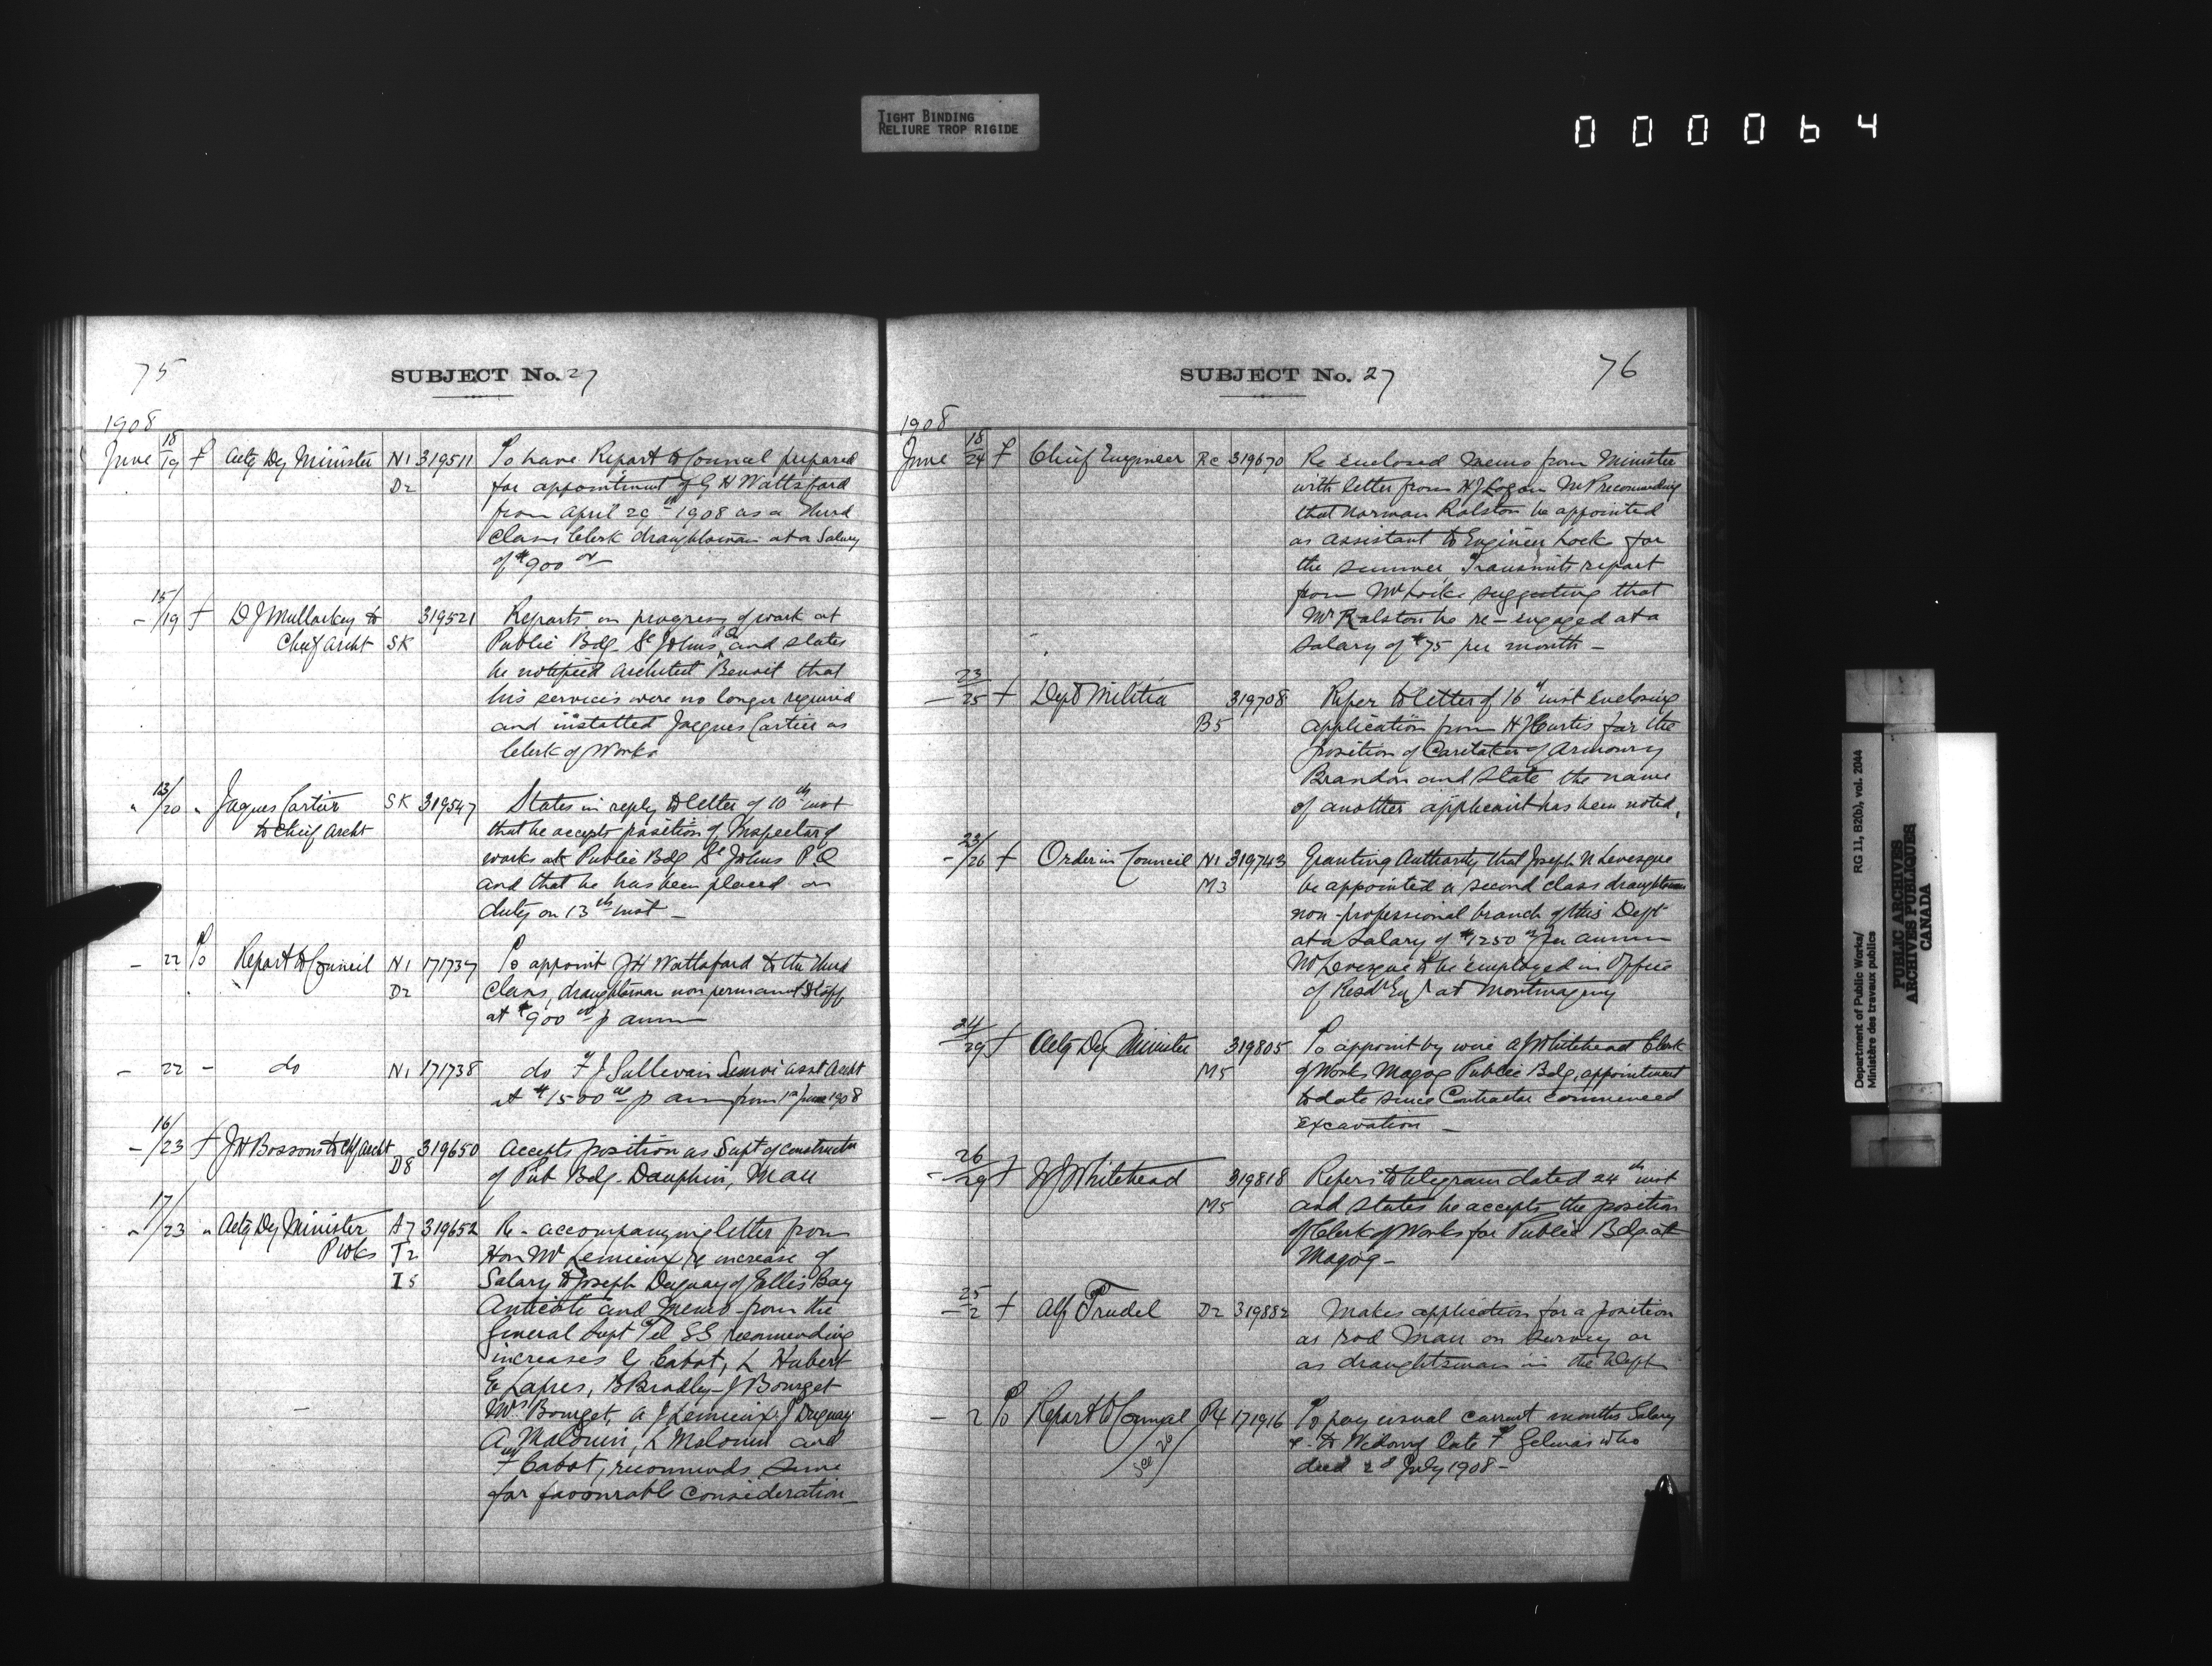 TIGHT BINDING
RELIURE TROP RIGIDE
000064
75
SUBJECT No. 27
1908
June 18/19 f Actg Dy Minister N1 319511 To have Report to Council prepared
D2 for appointment of G H Wattsford
from April 29th 1908 as a Third
Class Clerk draughtsman at a Salary
of $900 00
- 15/19 f D J Mullarkey to 319521 Reports on progress of work at
Chief Archt SK Public Bdg St Johns P.Q. and states
he notified Architect Benoit that
his services were no longer required
and installed Jacques Cartier as
Clerk of Works
" 13/20 " Jaques Cartier SK 319547 States in reply to letter of 10th inst
to Chief Archt that he accepts position of Inspector of
works at Public Bdg St Johns P Q
and that he has been placed on
duty on 13th inst -
- 22 To Report to Council N1 171737 To appoint J H Wattsford to the Third
D2 Class, draughtsman non permanent
at $900 00 p annum
- 22 - do N1 171738 do F J Sullivan Senior asst Archt
at $1500 00 p ann from 1st June 1908
- 16/23 f J H Bossons to Chf Archt 319650 Accepts position as Supt of constructn
D8 of Pub Bdg. Dauphin, Man
" 17/23 " Actg Dy Minister A7 319652 Re - accompanying letter from
P Wks T2 Hon Mr Lemieux re increase of
I5 Salary to Joseph Duguay of Ellis Bay
Anticosti and memo from the
General Supt Tel SS recommending
increases G Cabot, L Hubert
E Lapres, B Bradley - J Bourget
Mrs Bourget, A J Lemieux, J Duguay
A Malouin, L Malouin and
F Cabot, recommends same
for favourable consideration -
76
SUBJECT No. 27
1908
June 18/24 f Chief Engineer Re 319670 Re enclosed memo from Minister
with letter from H J Logan M P recommending
that Norman Ralston be appointed
as assistant to Engineer Locke for
the summer. Transmits report
from Mr Locke suggesting that
Mr Ralston be re-engaged at a
salary of $75 per month -
- 23/25 f Dept Militia 319708 Refer to letter of 16th inst enclosing
B5 application from H J Curtis for the
position of Caretaker of Armoury
Brandon and state the name
of another applicant has been noted.
- 23/26 f Order in Council N1 319743 Granting Authority that Joseph N Levesque
M3 be appointed a second class draughtsman
non-professional branch of this Dept
at a salary of $1250 00 per annum
Mr Levesque to be employed in Office
of Resdt Engr at Montmagny
24/29 f Actg Dy Minister 319805 To appoint by wire A J Whitehead Clerk
M5 of Works Magog Public Bdg, appointment
to date since Contractor commenced
excavation -
- 26/29 f W J Whitehead 319818 Refers to telegram dated 24th inst
M5 and states he accepts the position
of Clerk of Works for Public Bdg at
Magog -
- 25/2 f Alf Trudel D2 319882 Makes application for a position
as rod man on survey or
as draughtsman in the Dept
- 2 To Report to Council R4 171916 To pay usual current months Salary
&c to Widow of late F Gelinas who
died 2d July 1908 -
Department of Public Works/
Ministère des travaux publics
RG 11, B2(b), vol. 2044
PUBLIC ARCHIVES
ARCHIVES PUBLIQUES
CANADA